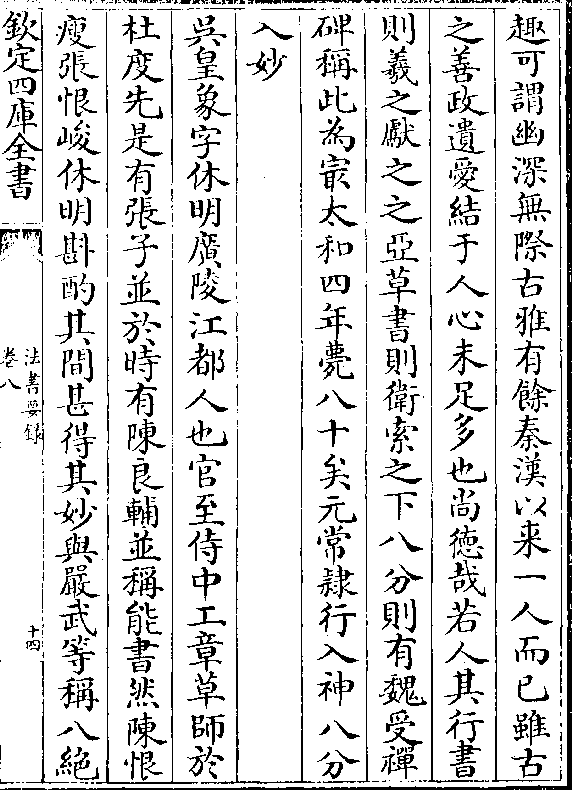 趣可謂幽深無際古雅有餘秦漢以来一人而已雖古
之善政遺愛結于人心未足多也尚徳哉若人其行書
則羲之獻之之亞草書則衛索之下八分則有魏受禪
碑稱此為㝡太和四年薨八十矣元常隷行入神八分
入妙
吳皇象字休明廣陵江都人也官至侍中工章草師於
杜度先是有張子並於時有陳良輔並稱能書然陳恨
瘦張恨峻休明斟酌其間甚得其妙與嚴武等稱八絶
欽定四庫全書
法書要録
卷八
十四